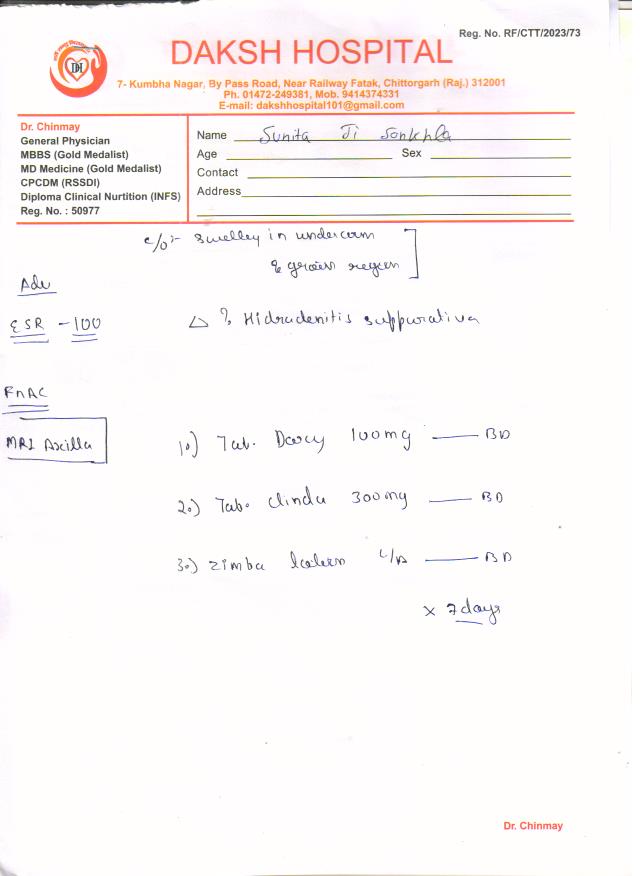 Reg. No. RF/CTT/2023/73
DAKSH HOSPITAL
7- Kumbha Nagar, By Pass Road, Near Railway Fatak, Chittorgarh (Raj.) 312001
Ph. 01472-249381, Mob. 9414374331
E-mail: dakshhospital101@gmail.com
Dr. Chinmay
General Physician
MBBS (Gold Medalist)
MD Medicine (Gold Medalist)
CPCDM (RSSDI)
Diploma Clinical Nurtition (INFS)
Reg. No. : 50977
Name Sunita Ji Sonkhla
Age Sex
Contact
Address
c/o:- Swelley in underarm
& groin region
Adv
ESR - 100
△ ? Hidradenitis suppurativa
FNAC
MRI Axcilla
1.) Tab. Doxy 100mg — BD
2.) Tab. Clinda 300mg — BD
3.) Zimba L/A — BD
x 7days
Dr. Chinmay